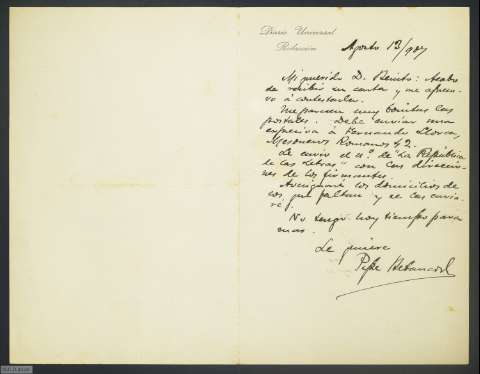 Diario Universal
Redacción
Agosto 13/907
Mi querido D. Benito: Acabo
de recibir su carta y me apresu-
ro á contestarle.
Me parecen muy bonitas las
postales. Debe enviar una
expresiva á Fernando Llorca,
Mesoneros Romanos 42.
Le envío el nº. de "La República
de las Letras" con las direccio-
nes de los firmantes.
Averiguaré los domicilios de
los que faltan y se los envia-
ré.
No tengo hoy tiempo para
mas.
Le quiere
Pepe